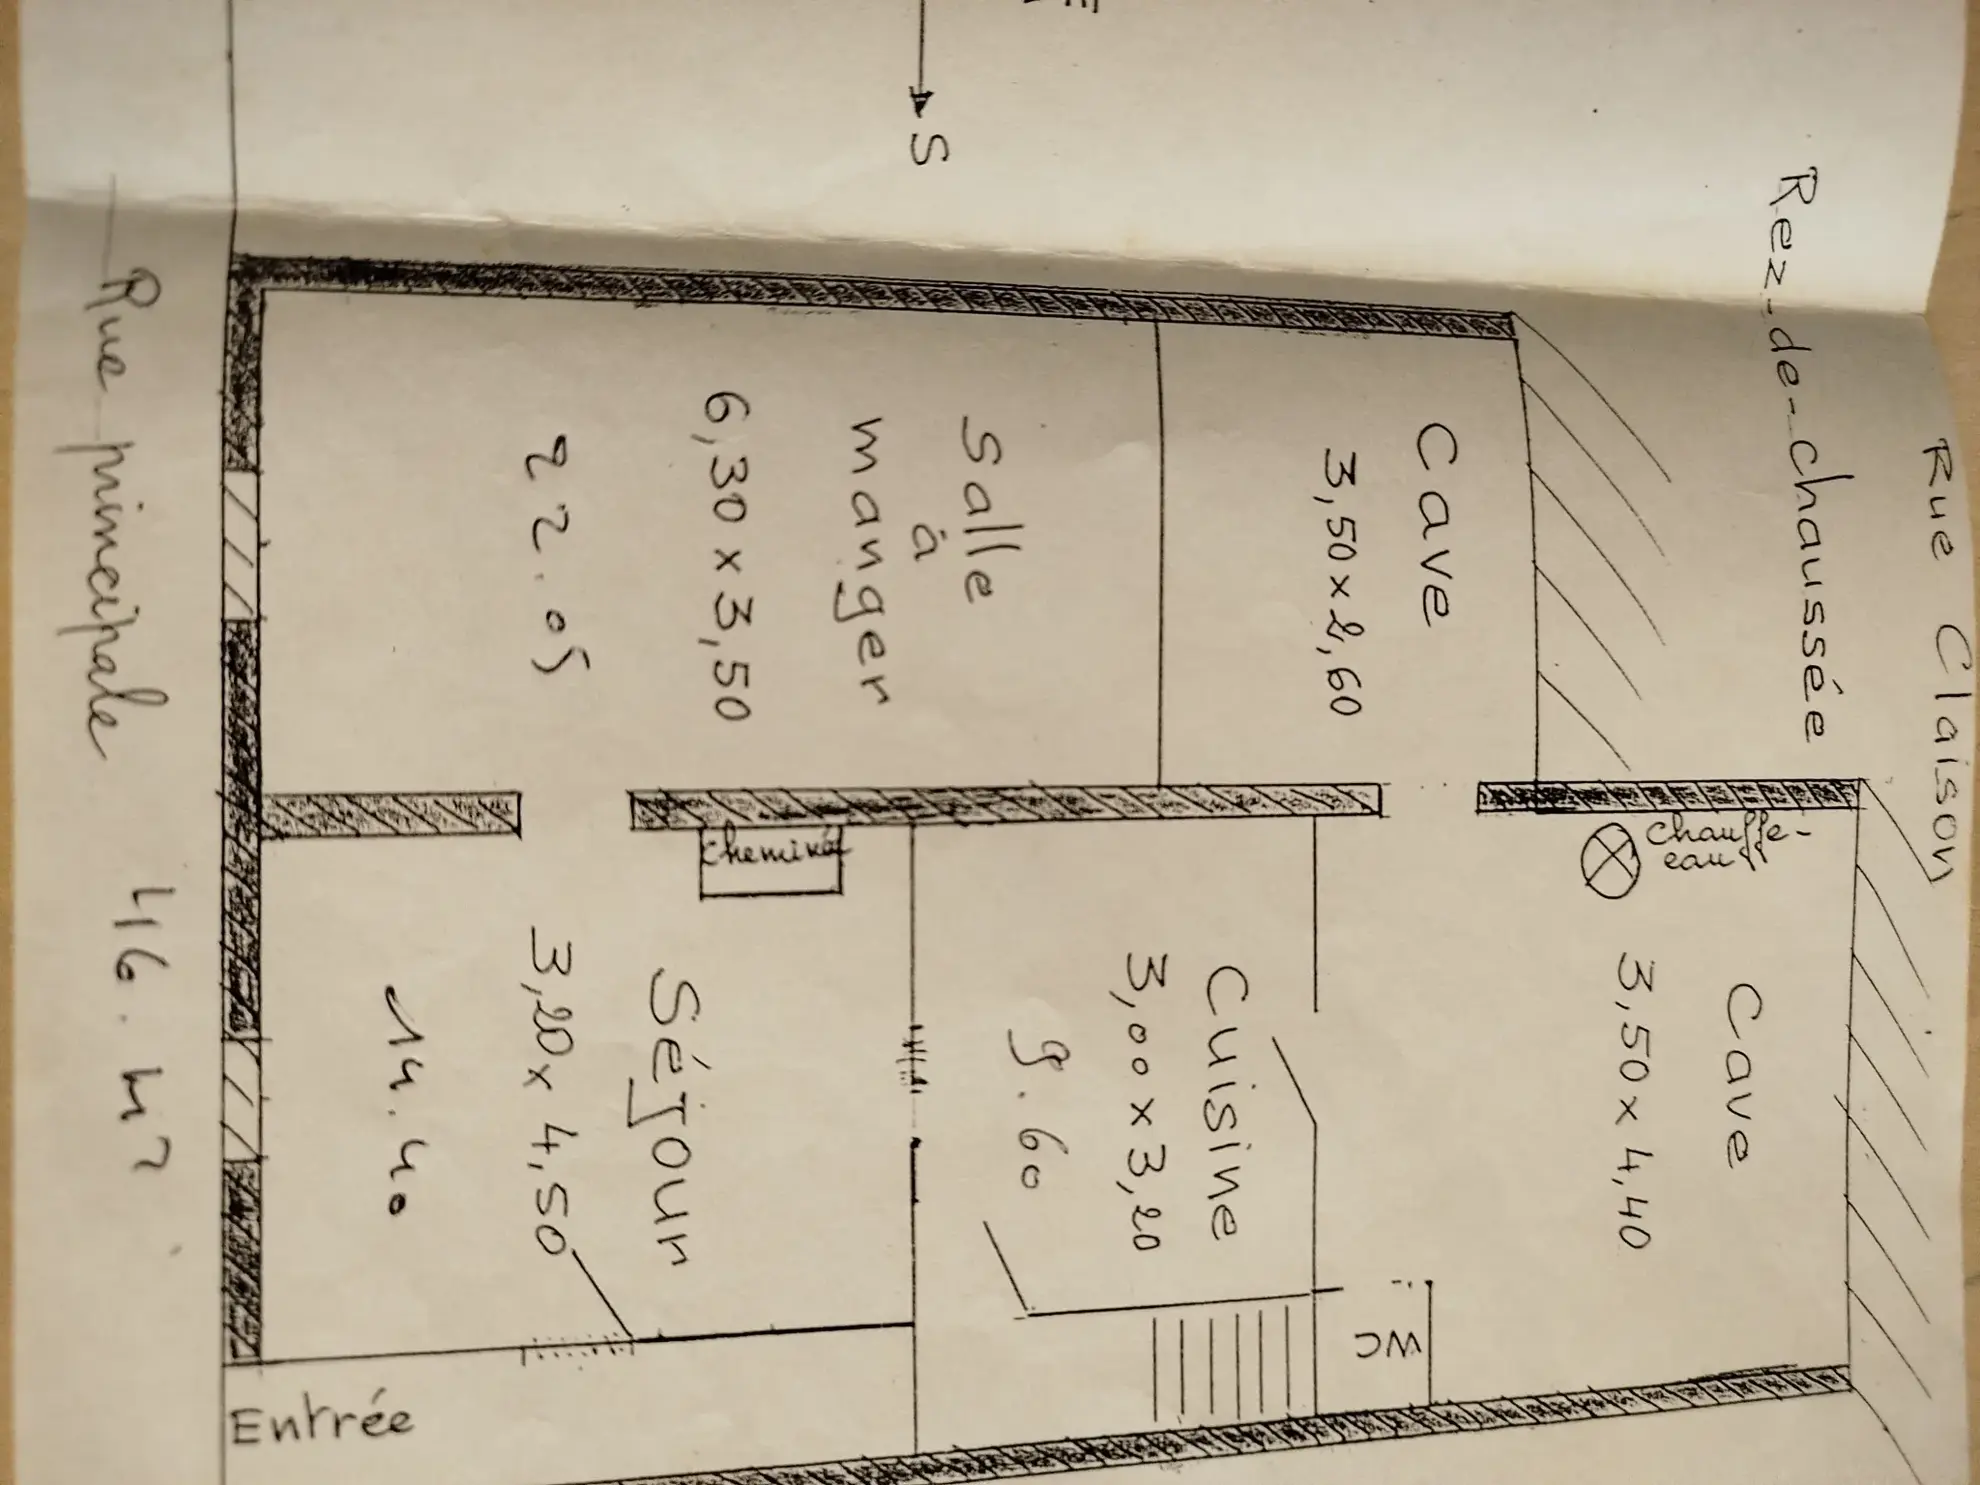 Rue Claison
Rez-de-chaussée
Cave
3,50 x 2,60
Chauffe-
eau
Cave
3,50 x 4,40
WC
Salle
à
manger
6,30 x 3,50
22.05
Cuisine
3,00 x 3,20
9.60
Cheminée
Séjour
3,20 x 4,50
14.40
Entrée
S
Rue principale 46. M²